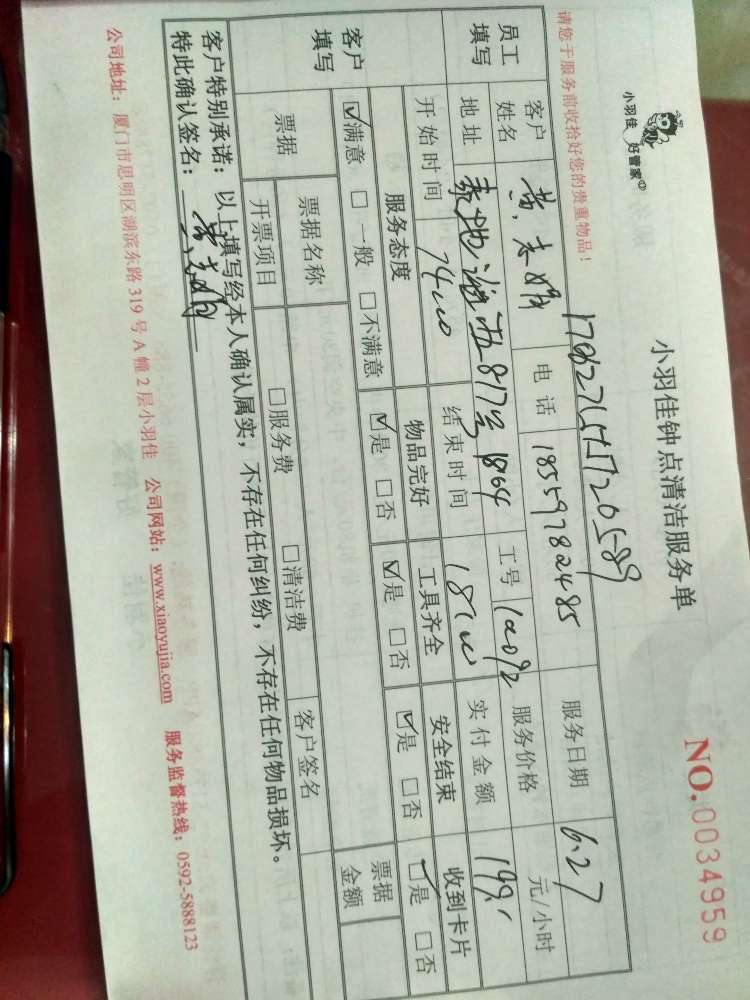 小羽佳 好管家
小羽佳钟点清洁服务单
NO.0034959
请您于服务前收拾好您的贵重物品！
员工填写
客户姓名 黄 电话 18559782485 服务日期 6.27
地址 817号 1864 工号 服务价格 元/小时
开始时间 14:00 结束时间 18:00 实付金额 199.
客户填写
服务态度 物品完好 工具齐全 安全结束 收到卡片
☑满意 □一般 □不满意 ☑是 □否 ☑是 □否 ☑是 □否 ☑是 □否
票据 票据名称 □服务费 □清洁费 客户签名 票据金额
开票项目
客户特别承诺：以上填写经本人确认属实，不存在任何纠纷，不存在任何物品损坏。
特此确认签名：
公司地址：厦门市思明区湖滨东路 319 号 A 幢 2 层小羽佳 公司网站：www.xiaoyujia.com 服务监督热线：0592-5888123